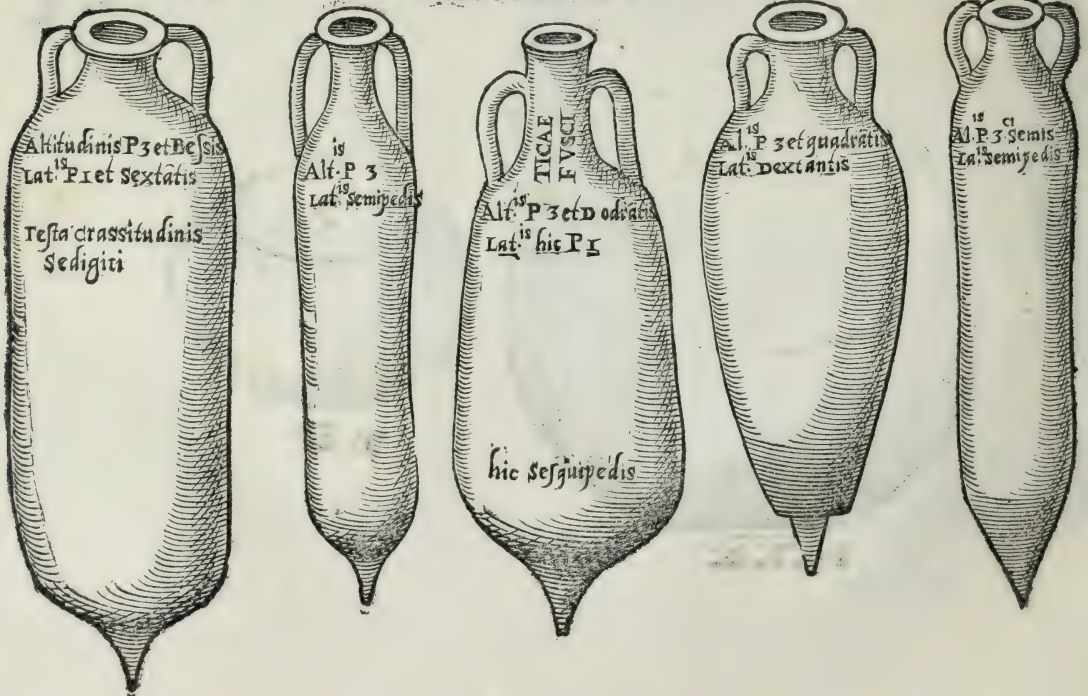 Altitudinis P 3 et Bessis
Lat.is P 1 et Sextatis
Testa crassitudinis
Sedigiti
Alt.is P 3
Lat.is Semipedis
TICAE
FVSCI
Alt.is P 3 et Dodratis
Lat.is hic P 1
hic Sesquipedis
Al.is P 3 et quadratis
Lat.is Dextantis
Al.is P 3 ci Semis
La.is Semipedis